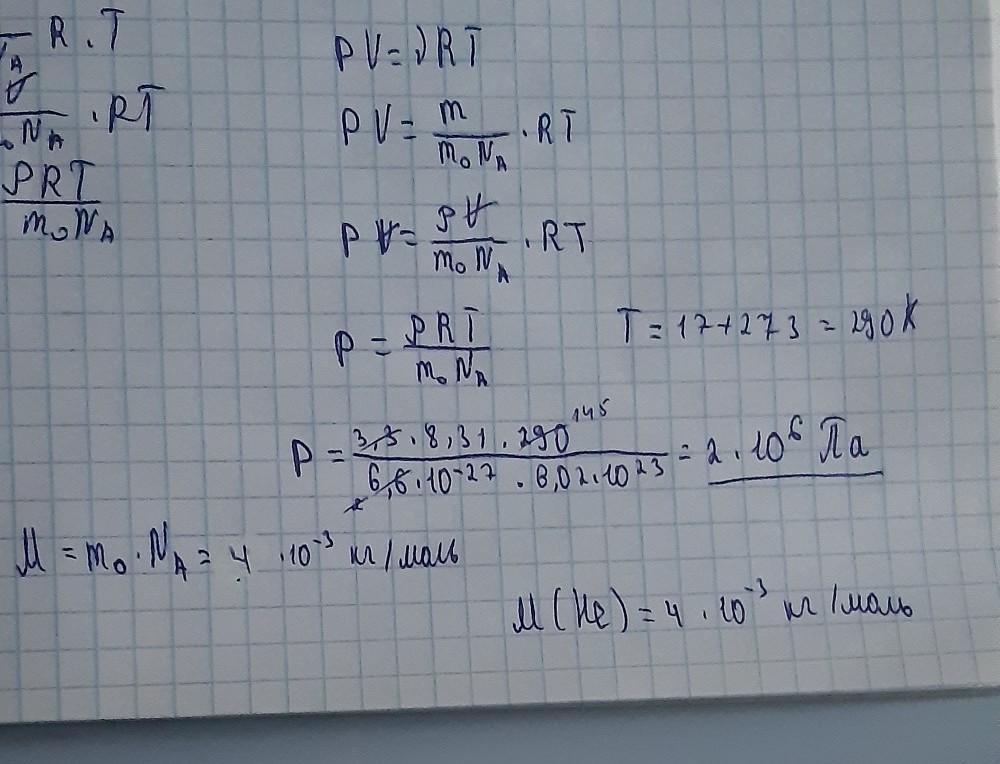 R . T
A
V
₀ N_A . RT
ρRT
m₀N_A
PV = νRT
PV = m / m₀N_A · RT
PV = ρV / m₀N_A · RT
P = ρRT / m₀N_A
T = 17+273 = 290K
145
P = 3,3 · 8,31 · 290 / 6,6·10⁻²⁷ · 6,02·10²³ = 2·10⁶ Па
2
M = m₀·N_A = 4 · 10⁻³ кг/моль
M(He) = 4 · 10⁻³ кг/моль